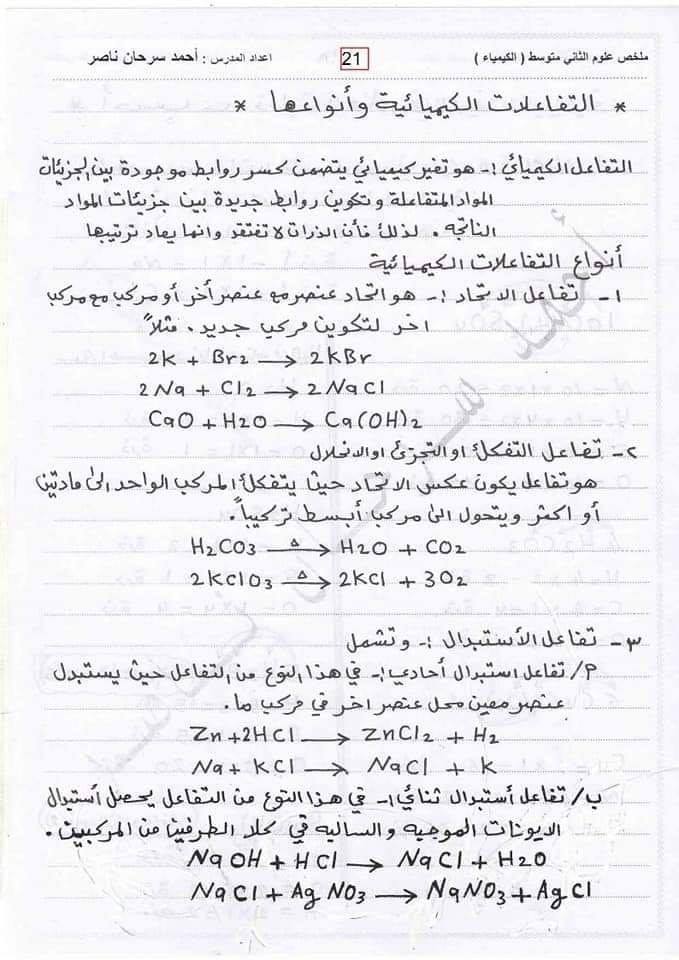 ملخص علوم الثاني متوسط ( الكيمياء ) 21 اعداد المدرس : أحمد سرحان ناصر
* التفاعلات الكيميائية وأنواعها *
التفاعل الكيميائي :- هو تغير كيميائي يتضمن كسر روابط موجودة بين الجزيئات
المواد المتفاعلة وتكوين روابط جديدة بين جزيئات المواد
الناتجه . لذلك فأن الذرات لا تفتقد وانما يعاد ترتيبها
أنواع التفاعلات الكيميائية
١- تفاعل الاتحاد :- هو اتحاد عنصر مع عنصر أخر أو مركب مع مركب
اخر لتكوين مركب جديد . مثلاً
2K + Br2 → 2KBr
2Na + Cl2 → 2NaCl
CaO + H2O → Ca(OH)2
٢- تفاعل التفكك او التجزئ او الانحلال
هو تفاعل يكون عكس الاتحاد حيث يتفكك المركب الواحد الى مادتين
أو اكثر ويتحول الى مركب أبسط تركيباً.
H2CO3 —Δ→ H2O + CO2
2KClO3 —Δ→ 2KCl + 3O2
٣- تفاعل الأستبدال :- وتشمل
م/ تفاعل استبدال أحادي :- في هذا النوع من التفاعل حيث يستبدل
عنصر معين محل عنصر اخر في مركب ما.
Zn + 2HCl → ZnCl2 + H2
Na + KCl → NaCl + K
ب/ تفاعل أستبدال ثنائي :- في هذا النوع من التفاعل يحصل أستبدال
الايونات الموجبه والسالبه في كلا الطرفين من المركبين.
NaOH + HCl → NaCl + H2O
NaCl + AgNO3 → NaNO3 + AgCl
أحمد سرحان ناصر